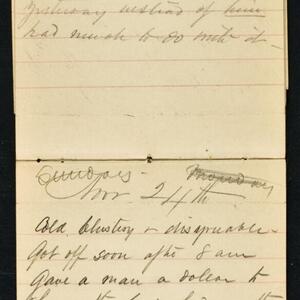 yesterday instead of him
had much to do with it -
Sunday - Monday
Nov 24th
Cold, blustery & disagreeable -
Got off soon after 8 am
Gave a man a dollar to